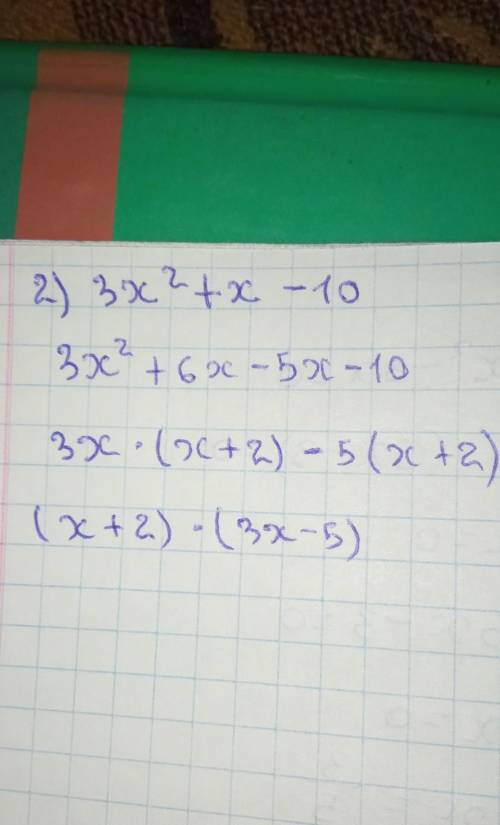 2) 3x² + x - 10
3x² + 6x - 5x - 10
3x · (x + 2) - 5 (x + 2)
(x + 2) · (3x - 5)